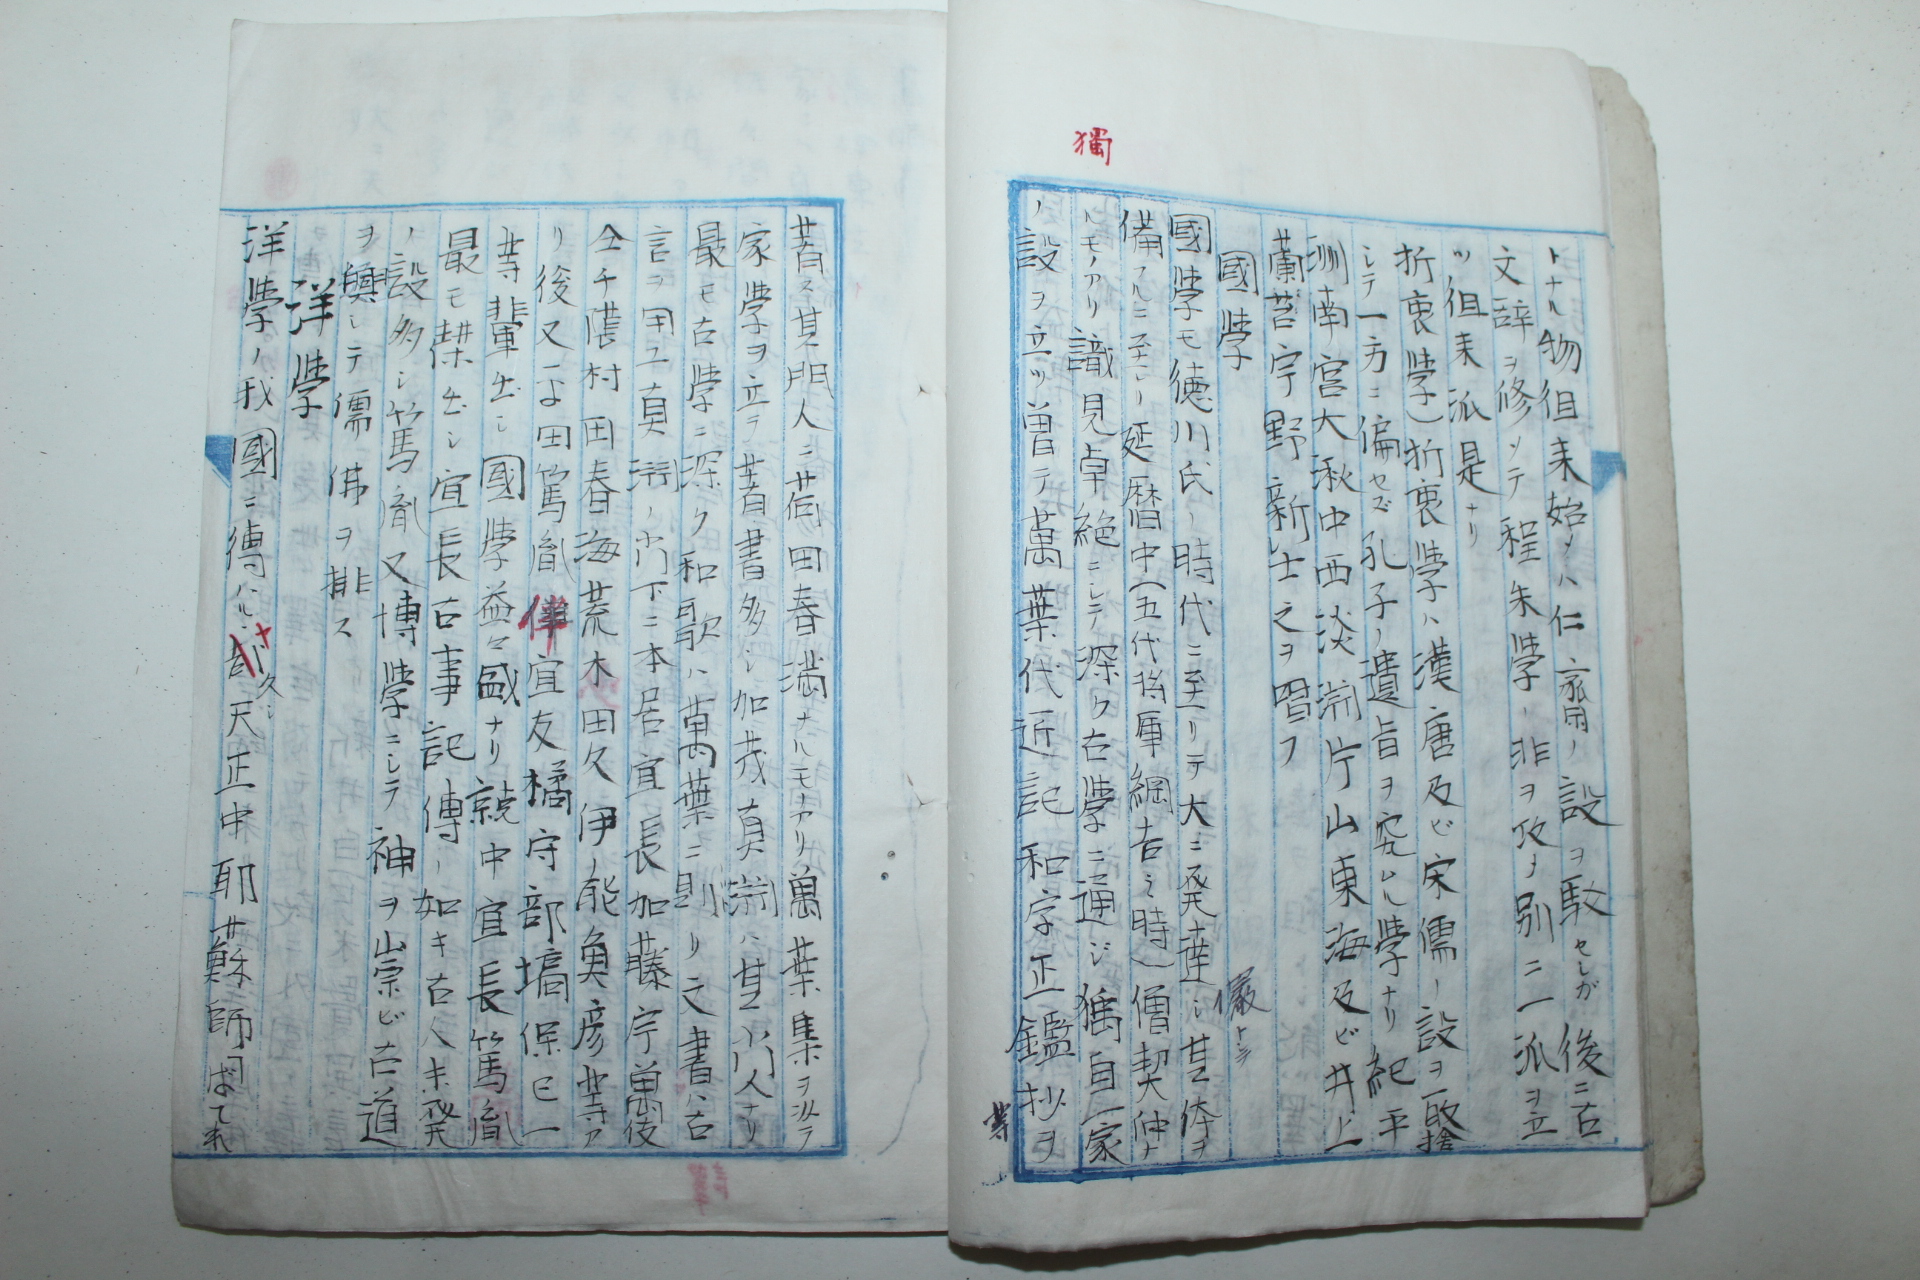 獨
トナル物徂来始メハ仁齋ノ設ヲ駁セシガ後ニ古
文辞ヲ修メテ程朱学ノ非ヲ攻メ別ニ一派ヲ立
ツ徂来派是ナリ
折衷学）折衷学ハ漢唐及ビ宋儒ノ設ヲ取捨
シテ一方ニ偏セズ孔子ノ遺旨ヲ究ムル学ナリ紀平
洲南宮大湫中西淡渕片山東海及ビ井上
蘭䑓宇野新士之ヲ唱フ
國学
國学モ徳川氏ノ時代ニ至リテ大ニ発達シ其体ヲ
儼トシテ
備フルニ至レリ延暦中（五代将軍綱吉ミ時）僧契仲ナ
ルモノアリ識見卓絶ニシテ深ク古学ニ通ジ獨自一家
ノ設ヲ立ツ曽テ萬葉代近記和字正鑑抄ヲ
等
著ス其門人ニ荷田春満ナルモノアリ萬葉集ヲ以テ
家学ヲ立テ著書多シ加茂真渕ハ其門人ナリ
最モ古学ニ深ク和歌ハ萬葉ニ則リ文書ハ古
言ヲ用ユ真渕ノ門下ニ本居宣長加藤宇萬伎
仝千蔭村田春海荒木田久伊ノ能魚彦等ア
リ後又平田篤胤伴宣友橘守部塙保已一
等輩出シ國学益々盛ナリ就中宣長篤胤
最モ傑出シ宣長古事記傳ノ如キ古人未発
ノ設多シ篤胤又博学ニシテ神ヲ崇ビ古道
ヲ興シテ儒佛ヲ排ス
洋学
洋学ノ我國ニ傳ハル久シ天正中耶蘇師ばてれ